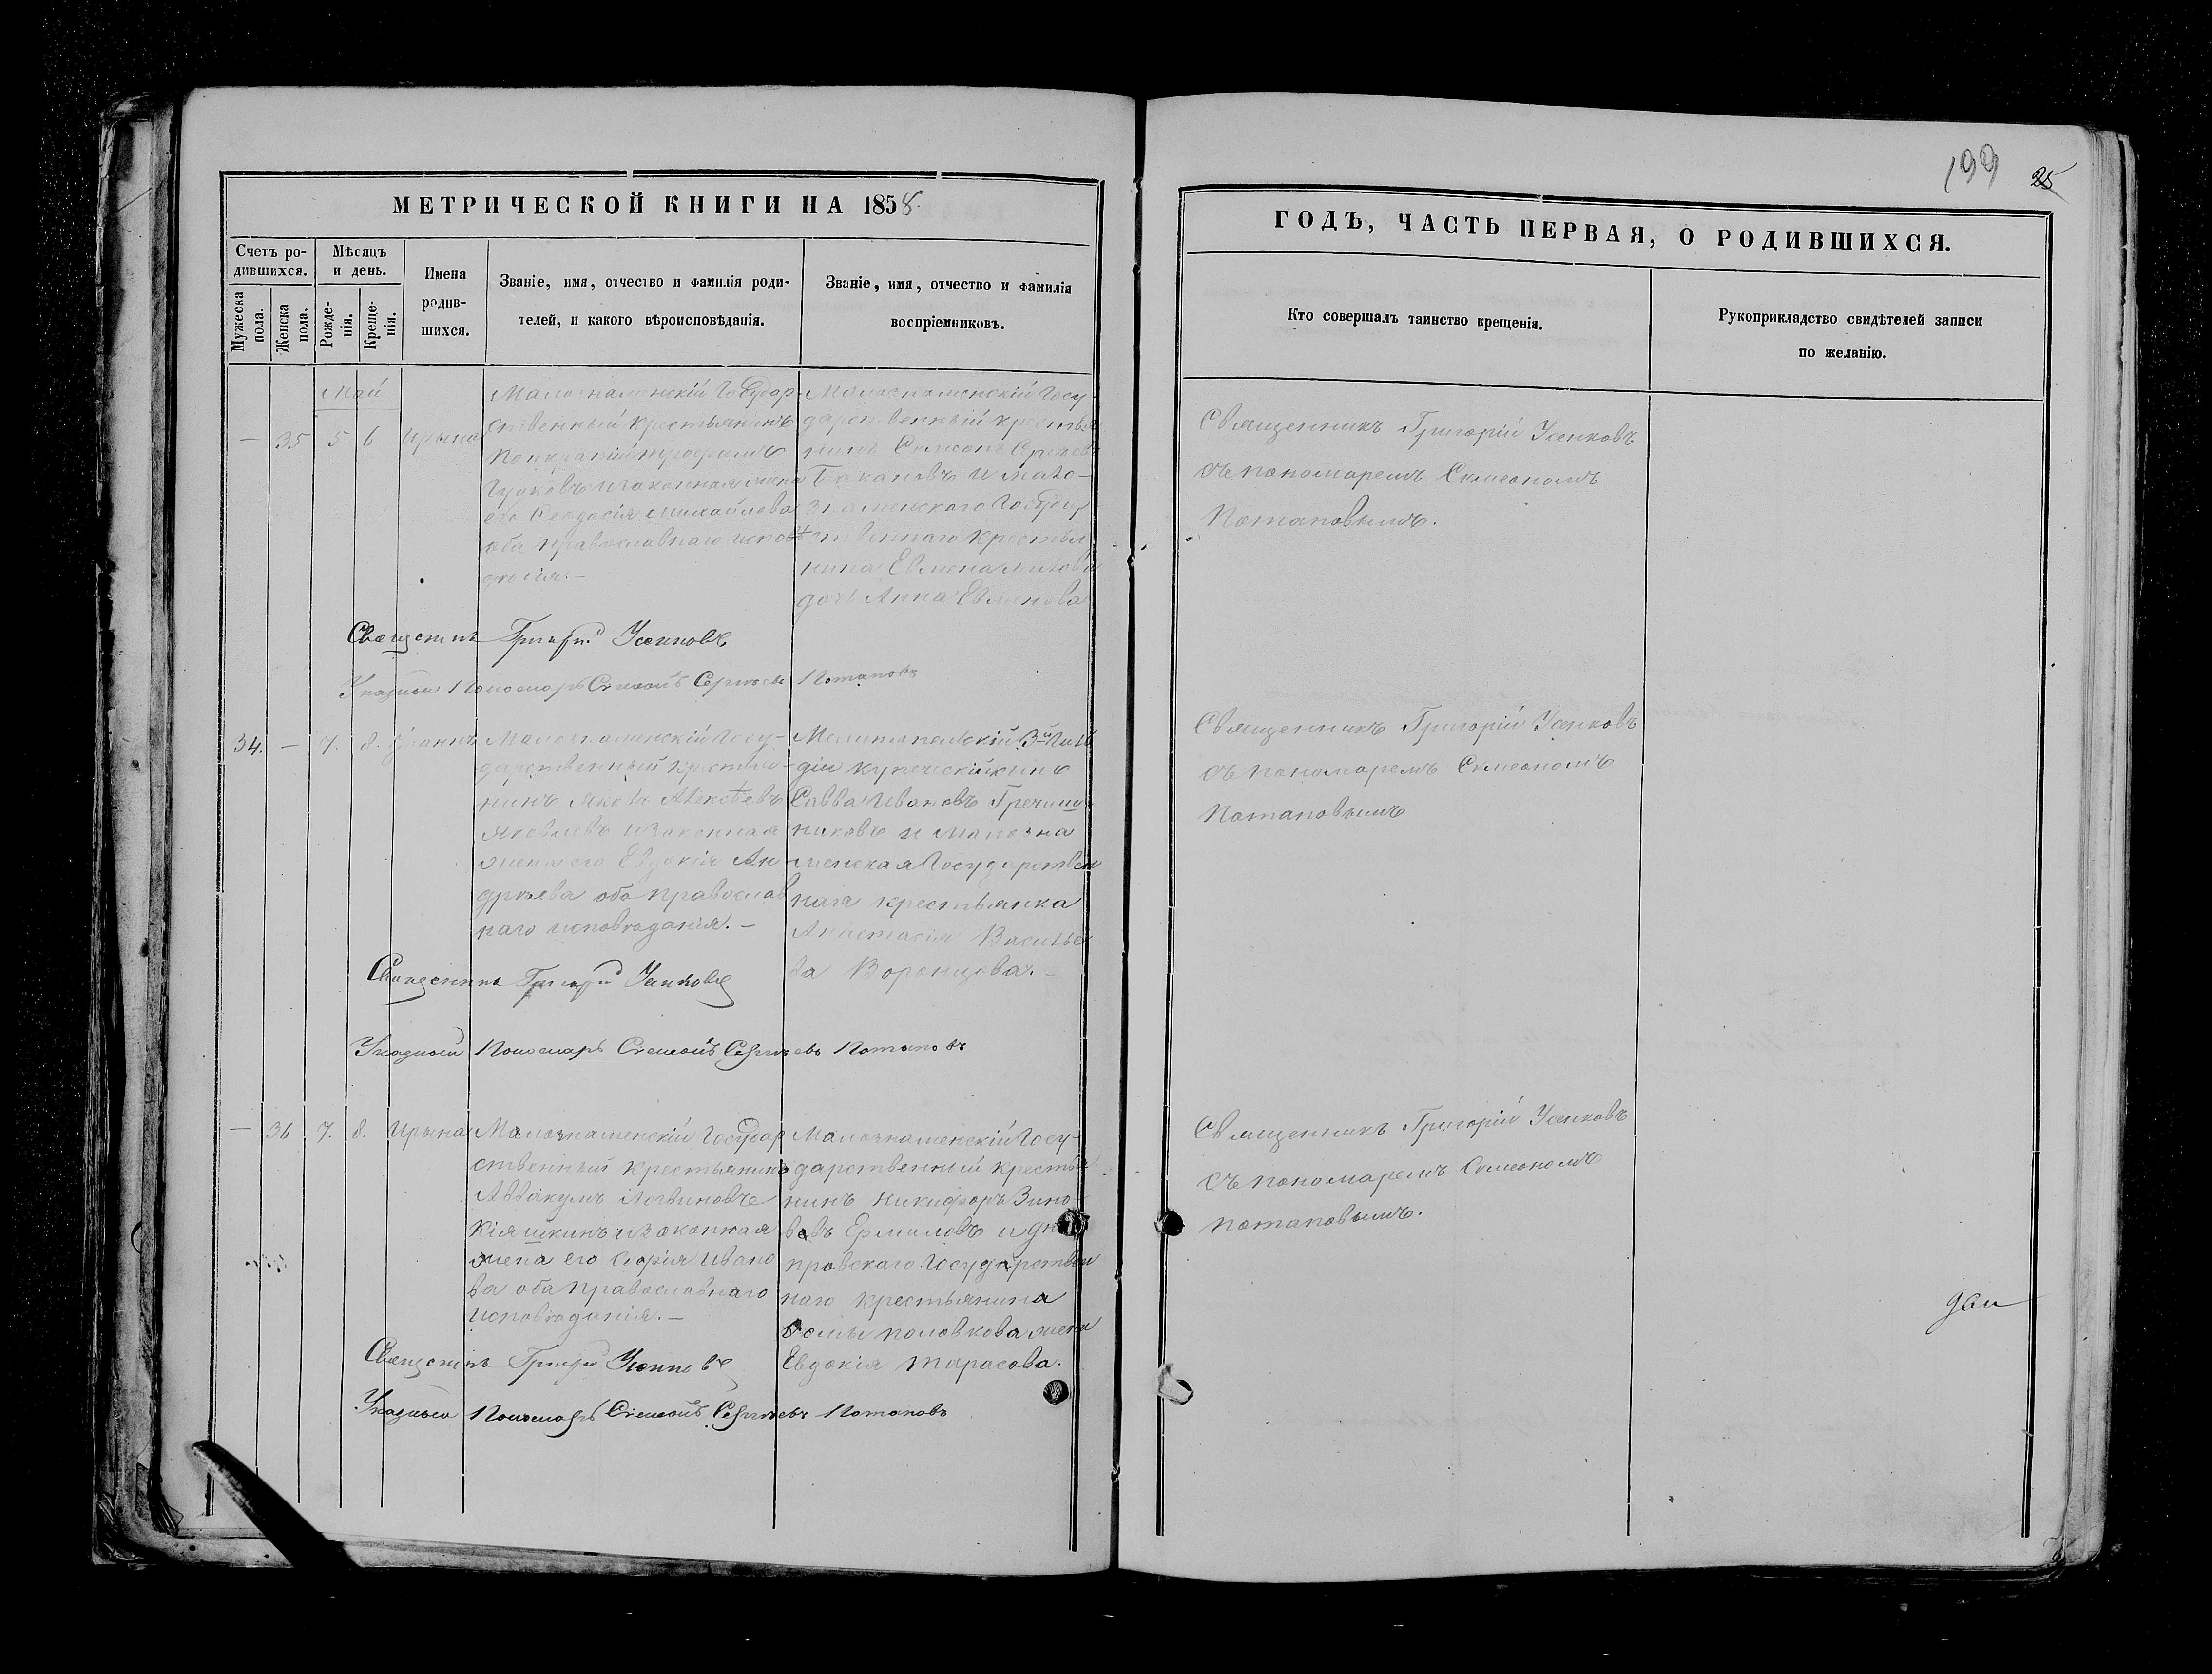 МЕТРИЧЕСКОЙ КНИГИ НА 1858
Счетъ ро-
дившихся.
Мужеска
пола.
Женска
пола.
Мѣсяцъ
и день.
Рожде-
нія.
Креще-
нія.
Имена
родив-
шихся.
Званіе, имя, отчество и фамилія роди-
телей, и какого вѣроисповѣданія.
Званіе, имя, отчество и фамилія
воспріемниковъ.
Май
— 35 5 6 Ирына
Малознаменскій Государ
ственный крестьянинъ
Панкратій Трофимъ
Гусковъ и законная жена
его Феодосія Михайлова
оба православнаго исповѣ
дысія. —
Малознаменскій Госу
дарственный крестья
нинъ Симеонъ Сергѣевъ
Бакановъ и мало-
знаменскаго Государ
ственнаго крестья
нина Евмена
дочь Анна Евменова
Священникъ Григорій Усенковъ
Указный Пономарь Симеонъ Сергѣевъ Потаповъ
34. — 7. 8. Іоаннъ
Малознаменскій Госу-
дарственный крестья-
нинъ Яковъ Алексѣевъ
Яковлевъ и законная
жена его Евдокія Ан-
дреева оба православ
наго исповѣданія. —
Мелитопольскій 3й Гиль
діи купеческій сынъ
Савва Ивановъ Гречиш
никовъ и Малозна
менская Государствен
ная крестьянка
Анастасія Василье
ва Воронцова. —
Священникъ Григорій Усенковъ
Указный Пономарь Симеонъ Сергѣевъ Потаповъ
— 36 7. 8. Ирына
Малознаменскій Государ
ственный крестьянинъ
Аввакумъ Логвиновъ
Кіяшкинъ и законная
жена его Софія Ивано
ва оба православнаго
исповѣданія. —
Малознаменскій Госу-
дарственный крестья
нинъ Никифоръ Зино
вевъ Ермиловъ и дне
провскаго Государствен
наго крестьянина
Фомы Половкова жена
Евдокія Тарасова.
Священникъ Григорій Усенковъ
Указный Пономарь Симеонъ Сергѣевъ Потаповъ
199 25
ГОДЪ, ЧАСТЬ ПЕРВАЯ, О РОДИВШИХСЯ.
Кто совершалъ таинство крещенія.
Рукоприкладство свидѣтелей записи
по желанію.
Священникъ Григорій Усенковъ
съ пономаремъ Симеономъ
Потаповымъ.
Священникъ Григорій Усенковъ
съ пономаремъ Симеономъ
Потаповымъ
Священникъ Григорій Усенковъ
съ пономаремъ Симеономъ
Потаповымъ.